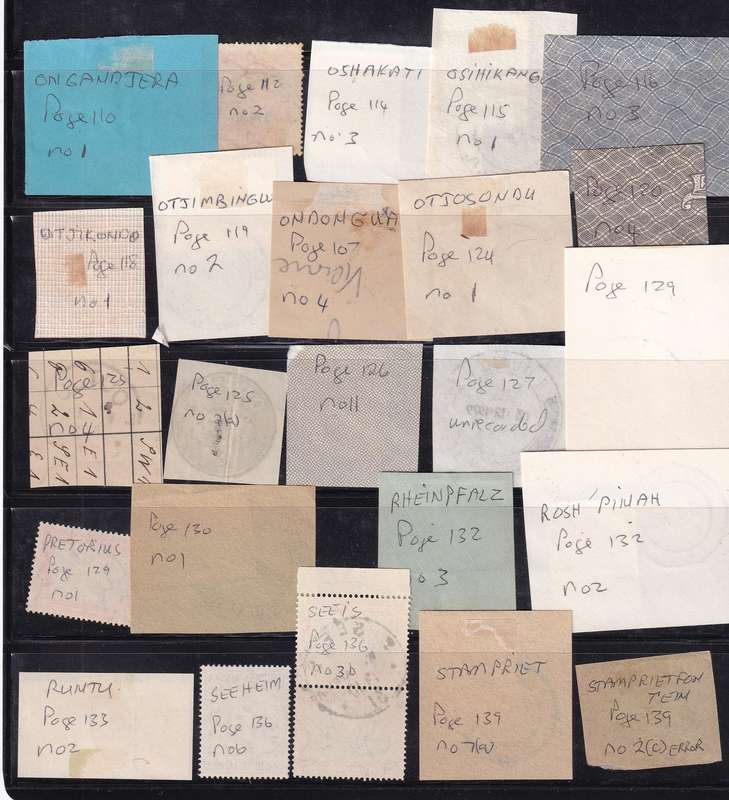 ONGANDJERA
Page 110
no 1
Page 112
no 2
OSHAKATI
Page 114
no 3
OSHIKANGO
Page 115
no 1
Page 116
no 3
OTJIKONDO
Page 118
no 1
OTJIMBINGW
Page 119
no 2
ONDONGWA
Page 107
no 4
OTJOSONDU
Page 124
no 1
Page 120
no 4
Page 129
Page 125
no 4
Page 125
Page 126
no 11
Page 127
unrecorded
PRETORIUS
Page 129
no 1
Page 130
no 1
RHEINPFALZ
Page 132
no 3
ROSH PINAH
Page 132
no 2
RUNTU
Page 133
no 2
SEEHEIM
Page 136
no 6
SEEIS
Page 136
no 3b
STAMPRIET
Page 139
STAMPRIETFON
TEIM
Page 139
no 2(c) ERROR